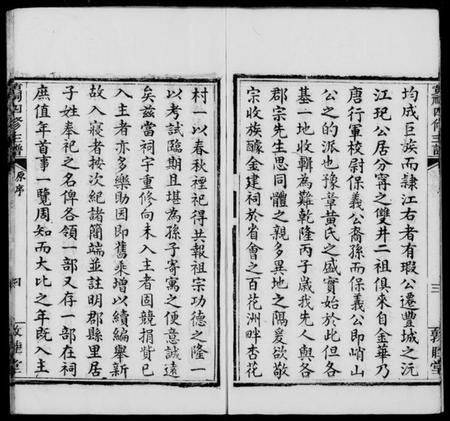 均成巨族而隸江右者有瑕公遷豐城之沅
江玘公居分寧之雙井二祖俱來自金華乃
唐行軍校尉保義公裔孫而保義公即峭山
公之的派也豫章黃氏之盛實始於此但各
基一地收輯為難乾隆丙子歲我先人與各
郡宗先生思同體之親多異地之隔爰欲敬
宗收族醵金建祠於省會之百花洲畔杏花
三
敦睦堂
四修主譜
原序
敦睦堂
村一以春秋禋祀得共報祖宗功德之隆一
以考試臨期且堪為孫子寄寓之便意誠遠
矣茲當祠宇重修向未入主者固競捐貲已
入主者亦多樂助因即舊乘增以續編舉新
故入寢者按次紀諸簡端並註明郡縣里居
子姓奉祀之名俾各領一部又存一部在祠
庶值年首事一覽周知而大比之年既入主